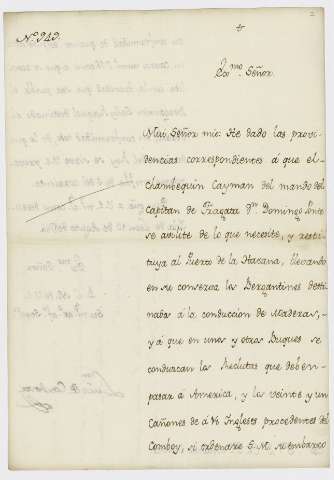 N.º 949.
Ex.mo Señor.
Mui Señor mio: He dado las provi-
dencias correspondientes á que el
chambequin Cayman del mando del
Capitan de Fragata D.n Domingo Ponte
se avilite de lo que necesite, y resti-
tuya al Puerto de la Havana, llevando
en su conserva los Bergantines desti-
nados á la conduccion de Maderas,
y á que en unos y otros Buques se
conduzcan las Reclutas que deben
pasar á America, y los veinte y un
Cañones de á Ingleses procedentes del
Comboy, si ordenare S. M. su embarco